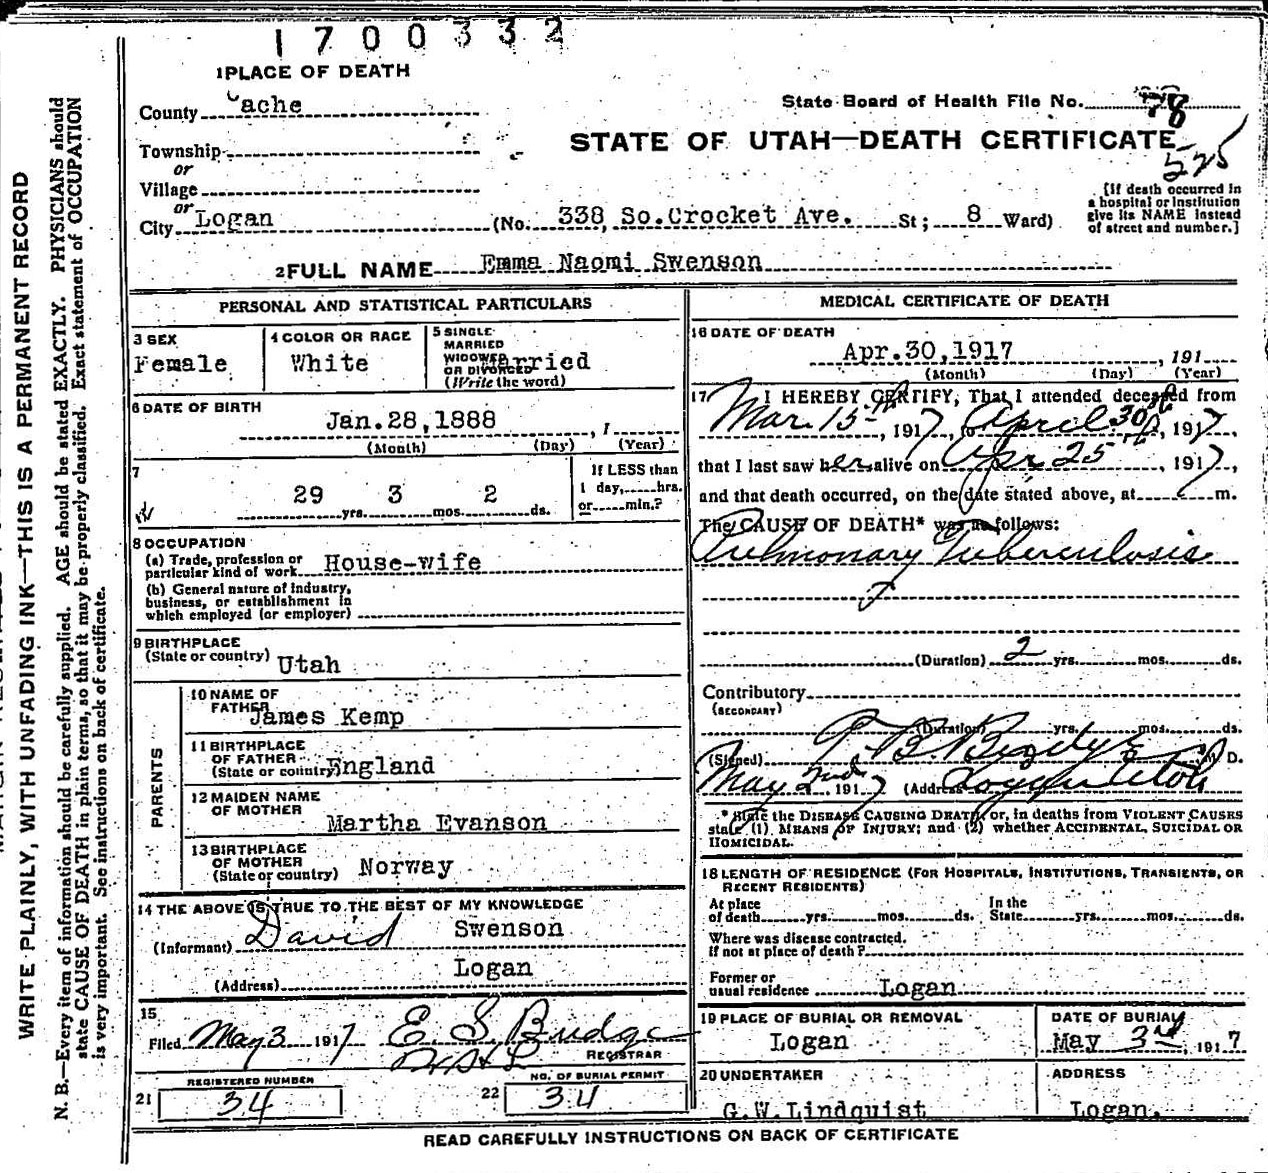 1700332
1 PLACE OF DEATH
County Cache
State Board of Health File No. 78
Township
STATE OF UTAH—DEATH CERTIFICATE
525
or
Village
or
City Logan (No. 338 So.Crocket Ave. St; 8 Ward)
[If death occurred in a hospital or institution give its NAME instead of street and number.]
2 FULL NAME Emma Naomi Swenson
PERSONAL AND STATISTICAL PARTICULARS
3 SEX
Female
4 COLOR OR RACE
White
5 SINGLE
MARRIED
WIDOWED
OR DIVORCED
(Write the word)
Married
6 DATE OF BIRTH
Jan.28,1888 , 1
(Month) (Day) (Year)
7
29 yrs. 3 mos. 2 ds.
If LESS than
1 day, hrs.
or min.?
8 OCCUPATION
(a) Trade, profession or
particular kind of work House-wife
(b) General nature of Industry,
business, or establishment in
which employed (or employer)
9 BIRTHPLACE
(State or country) Utah
PARENTS
10 NAME OF
FATHER James Kemp
11 BIRTHPLACE
OF FATHER
(State or country) England
12 MAIDEN NAME
OF MOTHER
Martha Evanson
13 BIRTHPLACE
OF MOTHER
(State or country) Norway
14 THE ABOVE IS TRUE TO THE BEST OF MY KNOWLEDGE
(Informant) David Swenson
(Address) Logan
15
Filed May 3 1917 E S Budge
REGISTRAR
REGISTERED NUMBER
21 34
NO. OF BURIAL PERMIT
22 34
MEDICAL CERTIFICATE OF DEATH
16 DATE OF DEATH
Apr.30,1917 , 191
(Month) (Day) (Year)
17 I HEREBY CERTIFY, That I attended deceased from
Mar. 15th, 1917, to April 30th, 1917,
that I last saw her alive on Apr 25th, 1917,
and that death occurred, on the date stated above, at m.
The CAUSE OF DEATH* was as follows:
Pulmonary Tuberculosis
(Duration) 2 yrs. mos. ds.
Contributory
(SECONDARY)
(Duration) yrs. mos. ds.
(Signed) B. M. D.
May 2nd 1917 (Address) Logan Utah
* State the DISEASE CAUSING DEATH, or, in deaths from VIOLENT CAUSES
state (1) MEANS OF INJURY; and (2) whether ACCIDENTAL, SUICIDAL OR
HOMICIDAL.
18 LENGTH OF RESIDENCE (FOR HOSPITALS, INSTITUTIONS, TRANSIENTS, OR
RECENT RESIDENTS)
At place
of death yrs. mos. ds.
In the
State yrs. mos. ds.
Where was disease contracted,
If not at place of death?
Former or
usual residence Logan
19 PLACE OF BURIAL OR REMOVAL
Logan
DATE OF BURIAL
May 3rd, 1917
20 UNDERTAKER
G.W.Lindquist
ADDRESS
Logan.
READ CAREFULLY INSTRUCTIONS ON BACK OF CERTIFICATE
WRITE PLAINLY, WITH UNFADING INK—THIS IS A PERMANENT RECORD
N. B.—Every item of information should be carefully supplied. AGE should be stated EXACTLY. PHYSICIANS should
state CAUSE OF DEATH in plain terms, so that it may be properly classified. Exact statement of OCCUPATION
is very important. See instructions on back of certificate.